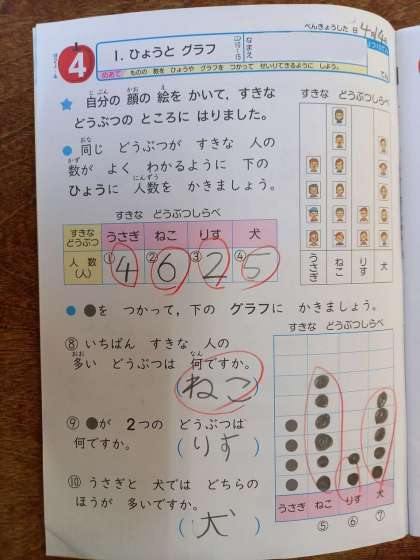 べんきょうした 日 4月14日
4
1. ひょうと グラフ
なまえ
めあて ものの 数を ひょうや グラフを つかって せいりできるように しよう。
てん
★ 自分の 顔の 絵を かいて，すきな
どうぶつの ところに はりました。
● 同じ どうぶつが すきな 人の
数が よく わかるように 下の
ひょうに 人数を かきましょう。
すきな どうぶつしらべ
うさぎ ねこ りす 犬
すきな どうぶつしらべ
すきな どうぶつ うさぎ ねこ りす 犬
人数（人） ①4 ②6 ③2 ④5
● ●を つかって，下の グラフに かきましょう。
⑧ いちばん すきな 人の
多い どうぶつは 何ですか。
（ねこ）
⑨ ●が 2つの どうぶつは
何ですか。
（りす）
⑩ うさぎと 犬では どちらの
ほうが 多いですか。
（犬）
すきな どうぶつしらべ
うさぎ ねこ りす 犬
⑤ ⑥ ⑦